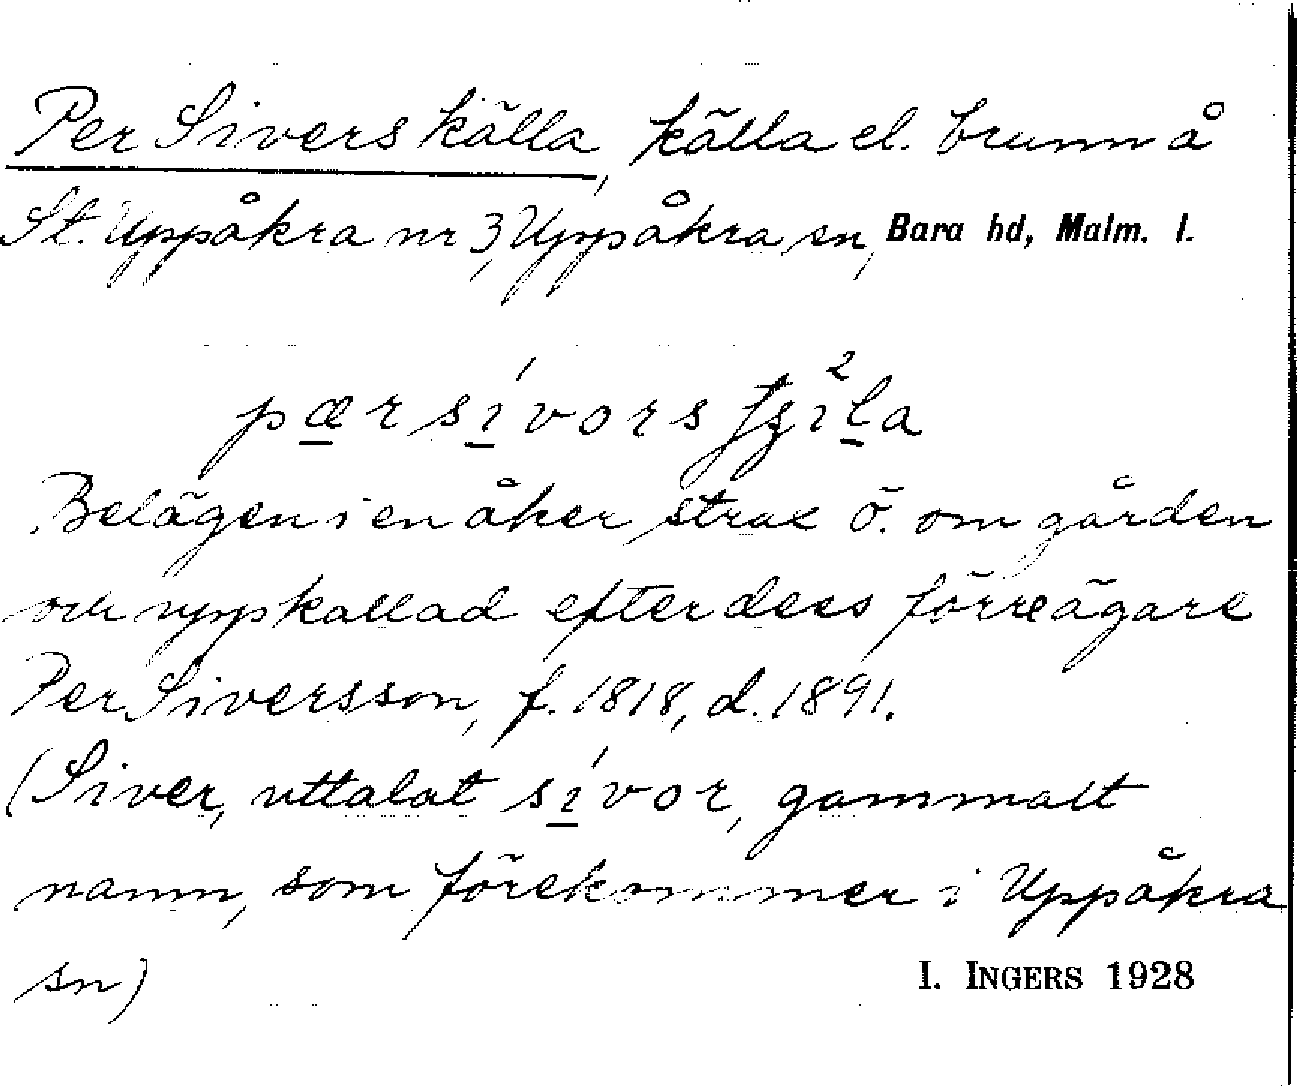 Per Sivers källa, källa el. brunn å
St. Uppåkra nr 3, Uppåkra sn, Bara hd, Malm. l.
pærsívors
Belägen i en åker strax ö. om gården
och uppkallad efter dess förre ägare
Per Siversson, f. 1818, d. 1891.
(Siver, uttalat sívor, gammalt
namn, som förekommer i Uppåkra
sn)
I. INGERS 1928